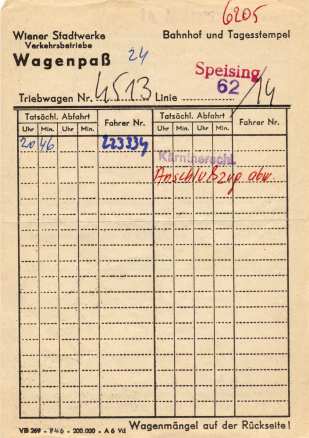 6205
Wiener Stadtwerke Bahnhof und Tagesstempel
Verkehrsbetriebe
Wagenpaß 24
Speising
Triebwagen Nr. 4513 Linie 62 /14
Tatsächl. Abfahrt Fahrer Nr. Tatsächl. Abfahrt Fahrer Nr.
Uhr Min. Uhr Min. Uhr Min. Uhr Min.
20 46 223334
Anschlußzug abw.
VB 269 - 946 - 200.000 - A 6 Vd Wagenmängel auf der Rückseite!